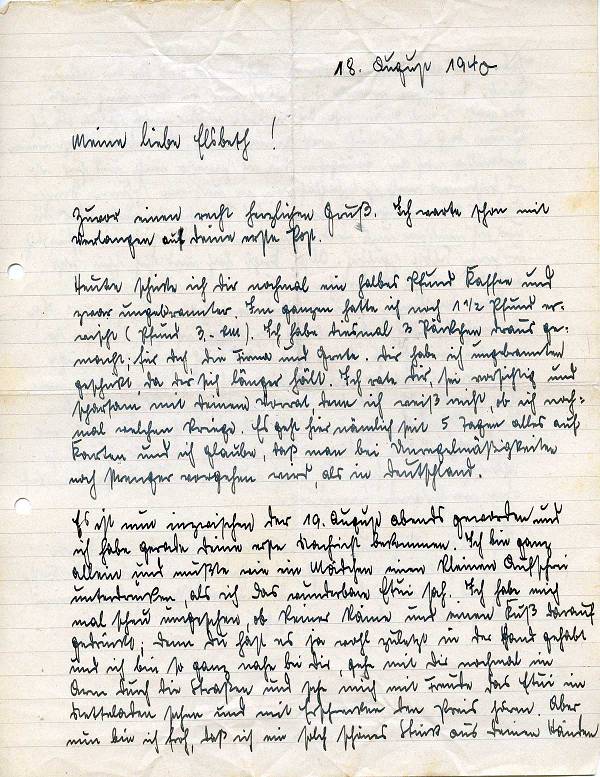 18. August 1940
Meine liebe Elsbeth!
Zuvor einen recht herzlichen Gruß. Ich warte schon mit
Verlangen auf Deine erste Post.
Heute schicke ich Dir nochmal ein halbes Pfund Kaffee und
zwar ungebrannter. Im ganzen hatte ich noch 1 1/2 Pfund er-
wischt (Pfund 3,- RM). Ich habe diesmal 3 Päckchen draus ge-
macht; für Dich, die Firma und Grete. Dir habe ich ungebrannten
geschickt, da der sich länger hält. Ich rate Dir, sei vorsichtig und
sparsam mit Deinem Vorrat denn ich weiß nicht, ob ich noch-
mal welchen kriege. Es geht hier nämlich seit 5 Tagen alles auf
Karten und ich glaube, daß man bei Unregelmäßigkeiten
noch strenger vorgehen wird, als in Deutschland.
Es ist nun inzwischen der 19. August abends geworden und
ich habe gerade Deine erste Nachricht bekommen. Ich bin ganz
allein und mußte wie ein Mädchen einen kleinen Aufschrei
unterdrücken, als ich das wunderbare Etui sah. Ich habe mich
mal scheu umgesehen, ob keiner käme und einen Kuß darauf
gedrückt; denn Du hast es ja wohl zuletzt in der Hand gehabt
und ich bin so ganz nahe bei Dir, gehe mit Dir nochmal im
Arm durch die Straßen und sehe mich mit Freude das Etui im
sehen und mit Erschrecken den Preis hören. Aber
nun bin ich froh, daß ich ein solch schönes Stück aus Deinen Händen